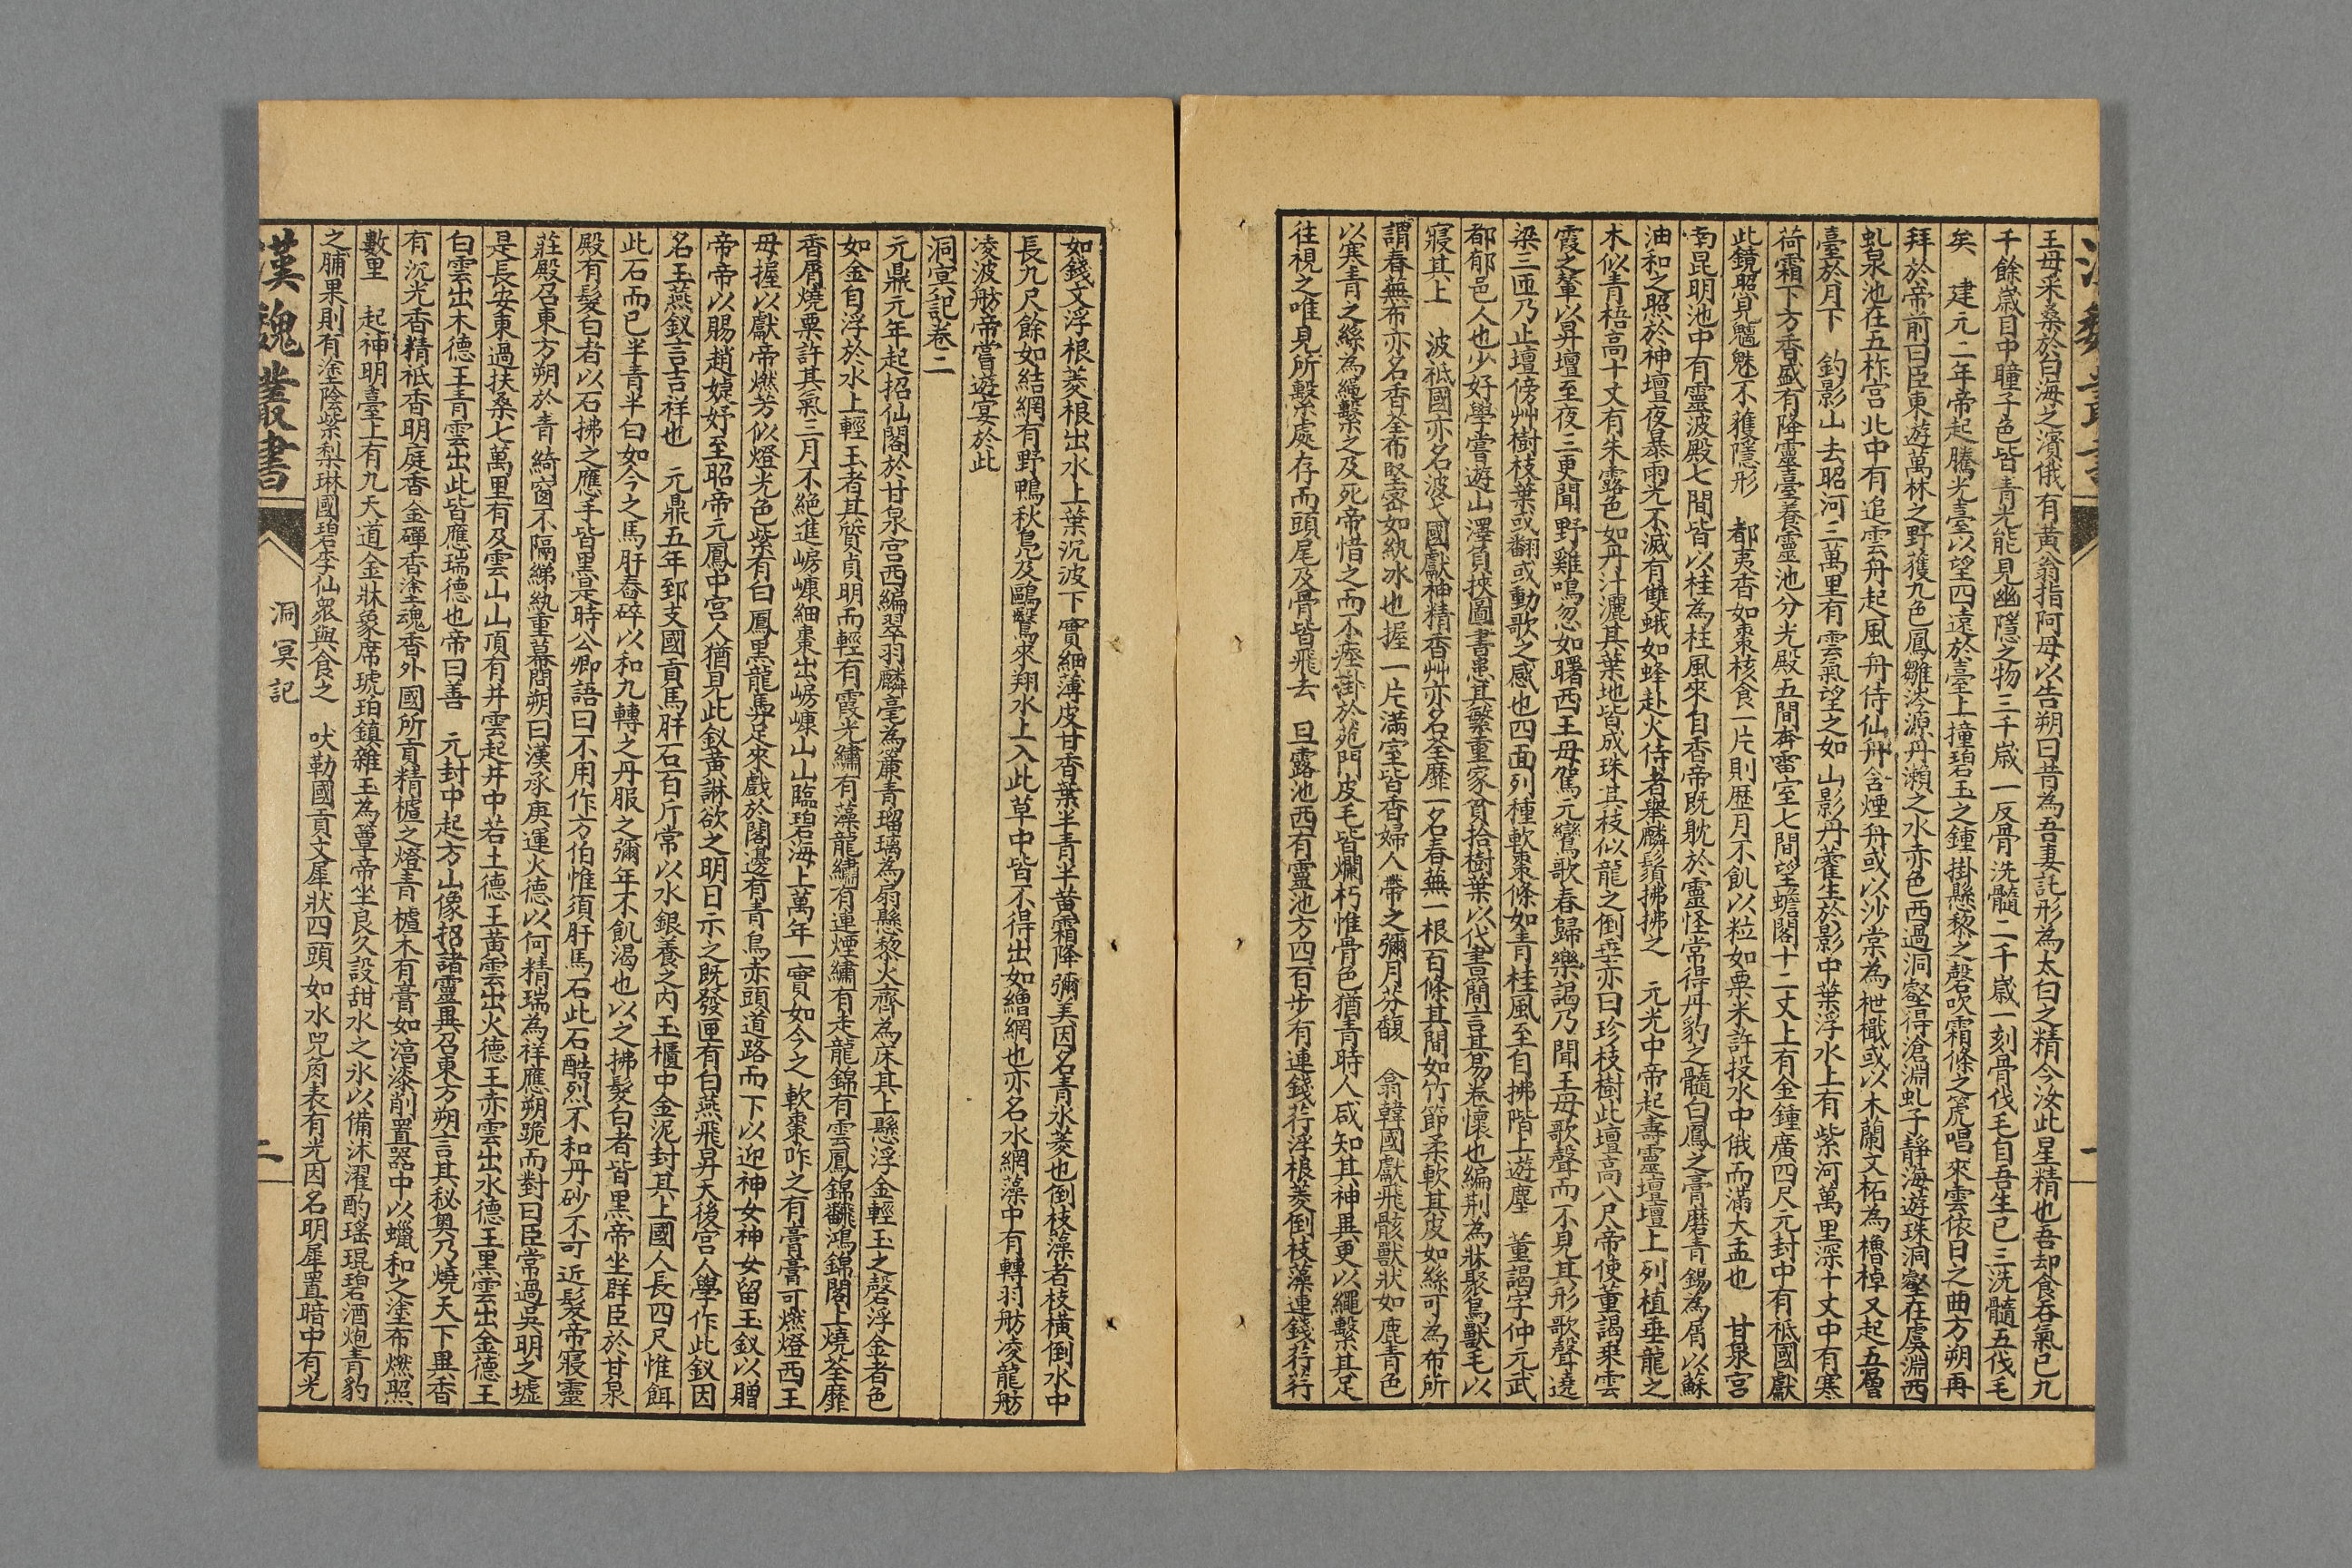 王母采桑於白海之濱俄有黃翁指阿母以告朔曰昔為吾妻託形為太白之精今汝此星精也吾却食吞氣已九
千餘歲目中瞳子色皆青光能見幽隱之物三千歲一反骨洗髓二千歲一刻骨伐毛自吾生已三洗髓五伐毛
矣　建元二年帝起騰光臺以望四遠於臺上撞碧玉之鍾掛懸黎之磬吹霜條之箎唱來雲依日之曲方朔再
拜於帝前曰臣東遊萬林之野獲九色鳳雛涔源丹瀨之水赤色西過洞壑得滄淵虬子靜海遊珠洞壑在虞淵西
虬泉池在五柞宮北中有追雲舟起風舟侍仙舟含煙舟或以沙棠為枻檝或以木蘭文柘為櫓棹又起五層
臺於月下　釣影山去昭河三萬里有雲氣望之如山影丹藿生於影中葉浮水上有紫河萬里深十丈中有寒
荷霜下方香盛有降靈臺養靈池分光殿五間奔雷室七間望蟾閣十二丈上有金鍾廣四尺元封中有祗國獻
此鏡照見魑魅不獲隱形　都夷香如棗核食一片則歷月不飢以粒如粟米許投水中俄而滿大盂也　甘泉宮
南昆明池中有靈波殿七間皆以桂為柱風來自香帝既耽於靈怪常得丹豹之髓白鳳之膏磨青錫為屑以蘇
油和之照於神壇夜暴雨光不滅有雙蛾如蜂赴火侍者舉麟鬚拂拂之　元光中帝起壽靈壇壇上列植垂龍之
木似青梧高十丈有朱露色如丹汁灑其葉地皆成珠其枝似龍之倒垂亦曰珍枝樹此壇高八尺帝使董謁乘雲
霞之輦以昇壇至夜三更聞野雞鳴忽如曙西王母駕元鸞歌春歸樂謁乃聞王母歌聲而不見其形歌聲遶
梁三匝乃止壇傍艸樹枝葉或翻或動歌之感也四面列種軟棗條如青桂風至自拂階上遊塵　董謁字仲元武
都郁邑人也少好學嘗遊山澤負挾圖書患其繁重家貧拾樹葉以代書簡言其易卷懷也編荆為牀聚鳥獸毛以
寢其上　波祗國亦名波弋國獻神精香艸亦名荃蘼一名春蕪一根百條其間如竹節柔軟其皮如絲可為布所
謂春蕪布亦名香荃布堅密如紈冰也握一片滿室皆香婦人帶之彌月芬馥　翕韓國獻飛骸獸狀如鹿青色
以寒青之絲為繩繫之及死帝惜之而不瘞掛於苑門皮毛皆爛朽惟骨色猶青時人咸知其神異更以繩繫其足
往視之唯見所繫處存而頭尾及骨皆飛去　旦露池西有靈池方四百步有連錢荇浮根菱倒枝藻連錢荇荇
如錢文浮根菱根出水上葉沉波下實細薄皮甘香葉半青半黄霜降彌美因名青氷菱也倒枝藻者枝橫倒水中
長九尺餘如結網有野鴨秋鳧及鷗鷖來翔水上入此草中皆不得出如繒網也亦名水網藻中有轉羽舫凌龍舫
凌波舫帝嘗遊宴於此
洞冥記卷二
元鼎元年起招仙閣於甘泉宮西編翠羽麟毫為簾青瑠璃為扇懸黎火齊為床其上懸浮金輕玉之磬浮金者色
如金自浮於水上輕玉者其質貞明而輕有霞光繡有藻龍繡有連煙繡有走龍錦有雲鳳錦翻鴻錦閣上燒荃蘼
香屑燒粟許其氣三月不絕進㟝嵊細棗出㟝嵊山山臨碧海上萬年一實如今之軟棗咋之有膏膏可燃燈西王
母握以獻帝燃芳似燈光色紫有白鳳黑龍馵足來戲於閣邊有青鳥赤頭道路而下以迎神女神女留玉釵以贈
帝帝以賜趙婕妤至昭帝元鳳中宮人猶見此釵黃諃欲之明日示之既發匣有白燕飛昇天後宮人學作此釵因
名玉燕釵言吉祥也　元鼎五年郅支國貢馬肝石百斤常以水銀養之內玉櫃中金泥封其上國人長四尺惟餌
此石而已半青半白如今之馬肝舂碎以和九轉之丹服之彌年不飢渴也以之拂髮白者皆黑帝坐群臣於甘泉
殿有髮白者以石拂之應手皆黑是時公卿語曰不用作方伯惟須肝馬石此石酷烈不和丹砂不可近髮帝寢靈
莊殿召東方朔於青綺窗不隔綈紈重幕問朔曰漢承庚運火德以何精瑞為祥應朔跪而對曰臣常過吳明之墟
是長安東過扶桑七萬里有及雲山山頂有井雲起井中若土德王黃雲出火德王赤雲出水德王黑雲出金德王
白雲出木德王青雲出此皆應瑞德也帝曰善　元封中起方山像招諸靈異召東方朔言其秘奧乃燒天下異香
有沉光香精祗香明庭香金磾香塗魂香外國所貢精櫨之燈青櫨木有膏如淳漆削置器中以蠟和之塗布燃照
數里　起神明臺上有九天道金牀象席琥珀鎮雜玉為簟帝坐良久設甜水之氷以備沐濯酌瑤琨碧酒炮青豹
之脯果則有塗陰紫梨琳國碧李仙衆與食之　吠勒國貢文犀狀四頭如水兕角表有光因名明犀置暗中有光
漢魏叢書
洞冥記
二